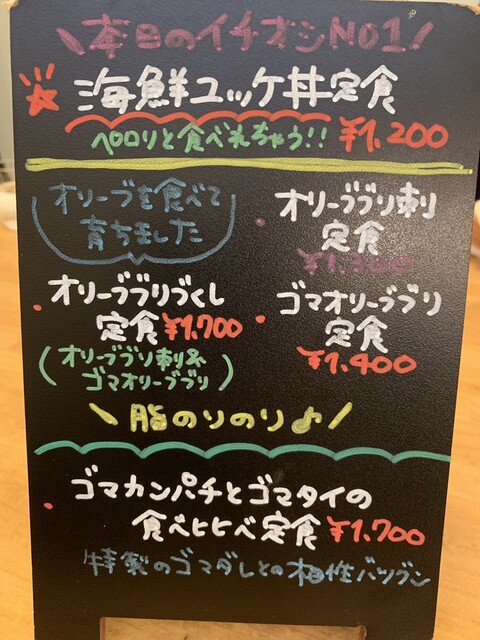 \本日のイチオシNO1!/
☆海鮮ユッケ丼定食
ペロリと食べれちゃう!! ¥1,200
オリーブを食べて
育ちました
オリーブブリづくし
定食 ¥1,700
(オリーブブリ刺&
ゴマオリーブブリ)
・オリーブブリ刺
定食
¥1,300
・ゴマオリーブブリ
定食
¥1,400
\脂のりのり♪/
・ゴマカンパチとゴマタイの
食べヒヒベ定食 ¥1,700
特製のゴマダレとの相性バツグン